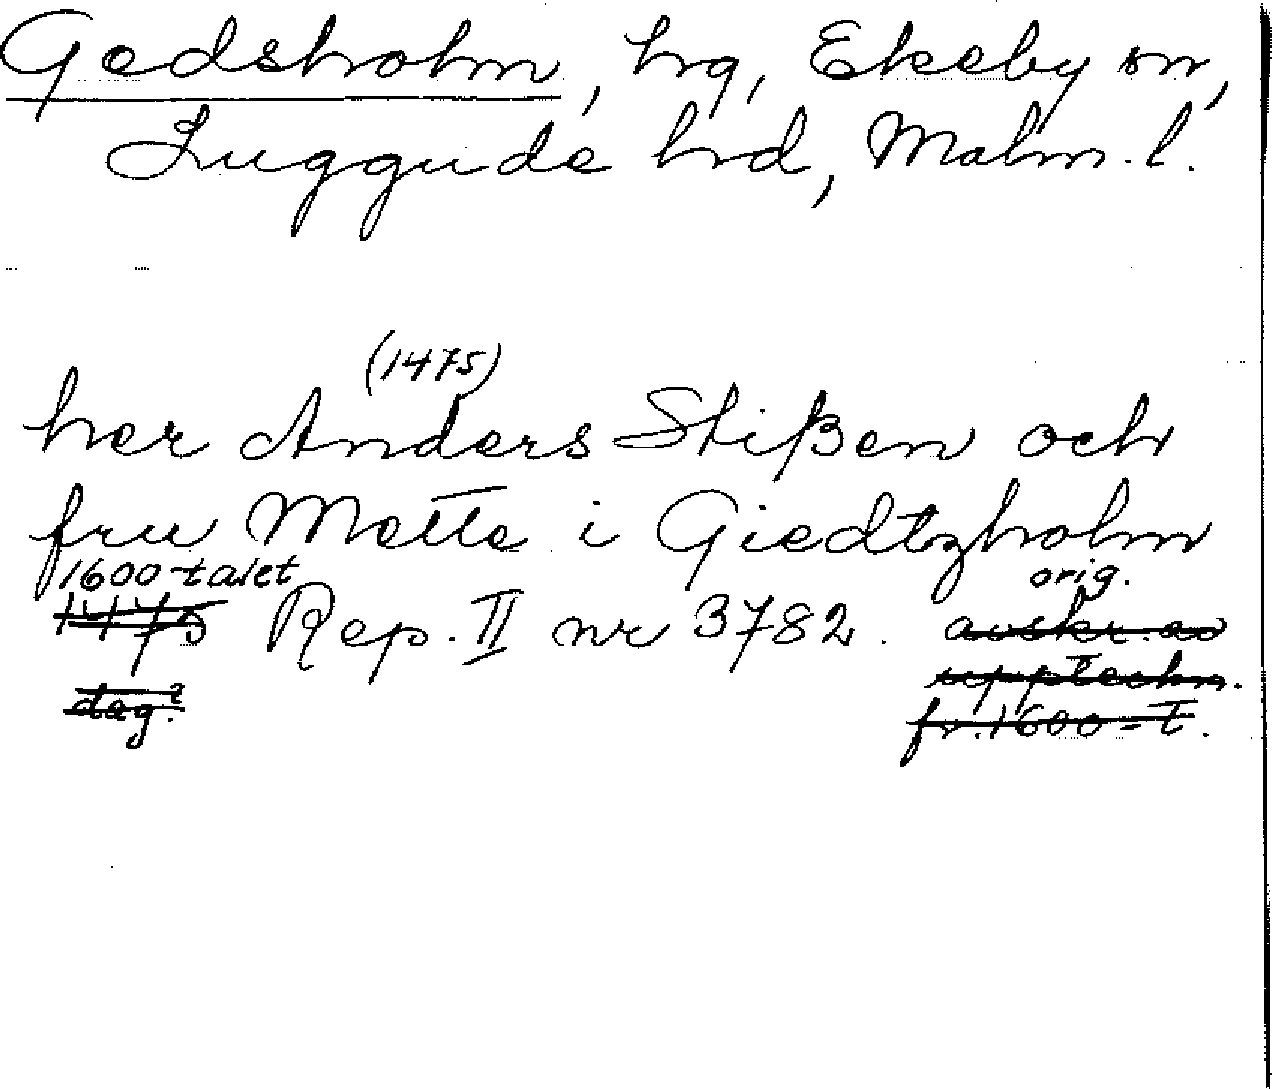 Gedsholm, hg, Ekeby sn,
Luggude hrd, Malm. l.
(1475)
her Anders Stißen och
fru Mette i Giedtzholm
1600-talet orig.
1475 Rep. II nr 3782. avskr. av
uppteckn.
dag.? fr. 1600-t.